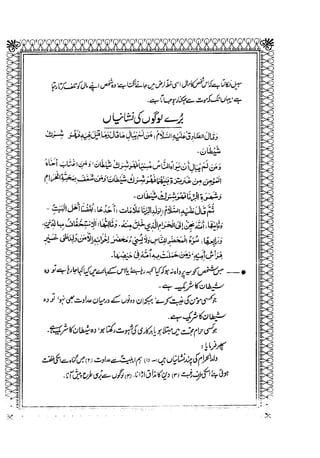 سبیل نکالتا ہے کہ اس شخص کا مال اسی میں جانے لگتا ہے، وہ شخص اپنے مال کو تلف کرتا رہتا
ہے یہاں تک کہ موت سے ہمکنار ہو جاتا ہے۔
بُرے لوگوں کی نشانیاں
وَقَالَ الصَّادِقُ عَلَيْهِ السَّلَامُ، مَنْ لَمْ يُبَالِ مَا قَالَ وَمَا قِيلَ فِيهِ فَهُوَ شِرْكُ
شَيْطَانٍ۔
وَمَنْ لَمْ يُبَالِ أَنْ يَرَاهُ النَّاسُ مُسِيئًا فَهُوَ شِرْكُ شَيْطَانٍ وَمَنِ اغْتَابَ أَخَاهُ
الْمُؤْمِنَ مِنْ غَيْرِ تِرَةٍ بَيْنَهُمَا فَهُوَ شِرْكُ شَيْطَانٍ وَمَنْ شُعِفَ بِمَحَبَّةِ الْحَرَامِ
وَشَهْوَةِ الزِّنَا فَهُوَ شِرْكُ شَيْطَانٍ۔
ثُمَّ قَالَ عَلَيْهِ السَّلَامُ: لِوَلَدِ الزِّنَا عَلَامَاتٌ، أَحَدُهَا، بُغْضُنَا أَهْلَ الْبَيْتِ۔
وَثَانِيهَا، أَنَّهُ يَحِنُّ إِلَى الْحَرَامِ الَّذِي خُلِقَ مِنْهُ۔ وَثَالِثُهَا، الْاِسْتِخْفَافُ بِالدِّينِ
وَرَابِعُهَا۔ سُوءُ الْمَحْضَرِ لِلنَّاسِ وَلَا يُسِيءُ مَحْضَرَ إِخْوَانِهِ إِلَّا مَنْ وُلِدَ عَلَى غَيْرِ
فِرَاشِ أَبِيهِ، وَمَنْ حَمَلَتْ بِهِ أُمُّهُ فِي حَيْضِهَا۔
جس شخص کو یہ پرواہ نہ ہو کہ کیا کہہ رہا ہے یا اس کے بارے میں کیا کہا جا رہا ہے تو وہ
شیطان کا شریک ہے۔
جو کسی مومن کی غیبت کرے جبکہ ان دونوں کے درمیان عداوت بھی نہ ہو تو وہ
شیطان کا شریک ہے۔
جو کسی حرام محبت میں مبتلا ہو یا بدکاری کی شہوت رکھتا ہو، وہ شیطان کا شریک ہے۔
پھر فرمایا:
ولدالحرام کی چند نشانیاں ہیں۔ (۱) ہم اہلبیتؑ سے عداوت (۲) جس گناہ سے اسکی خلقت
ہوئی ہے اسکی طرف رغبت (۳) دین کا مذاق اڑانا۔ (۴) لوگوں سے بُری طرح پیش آنا۔